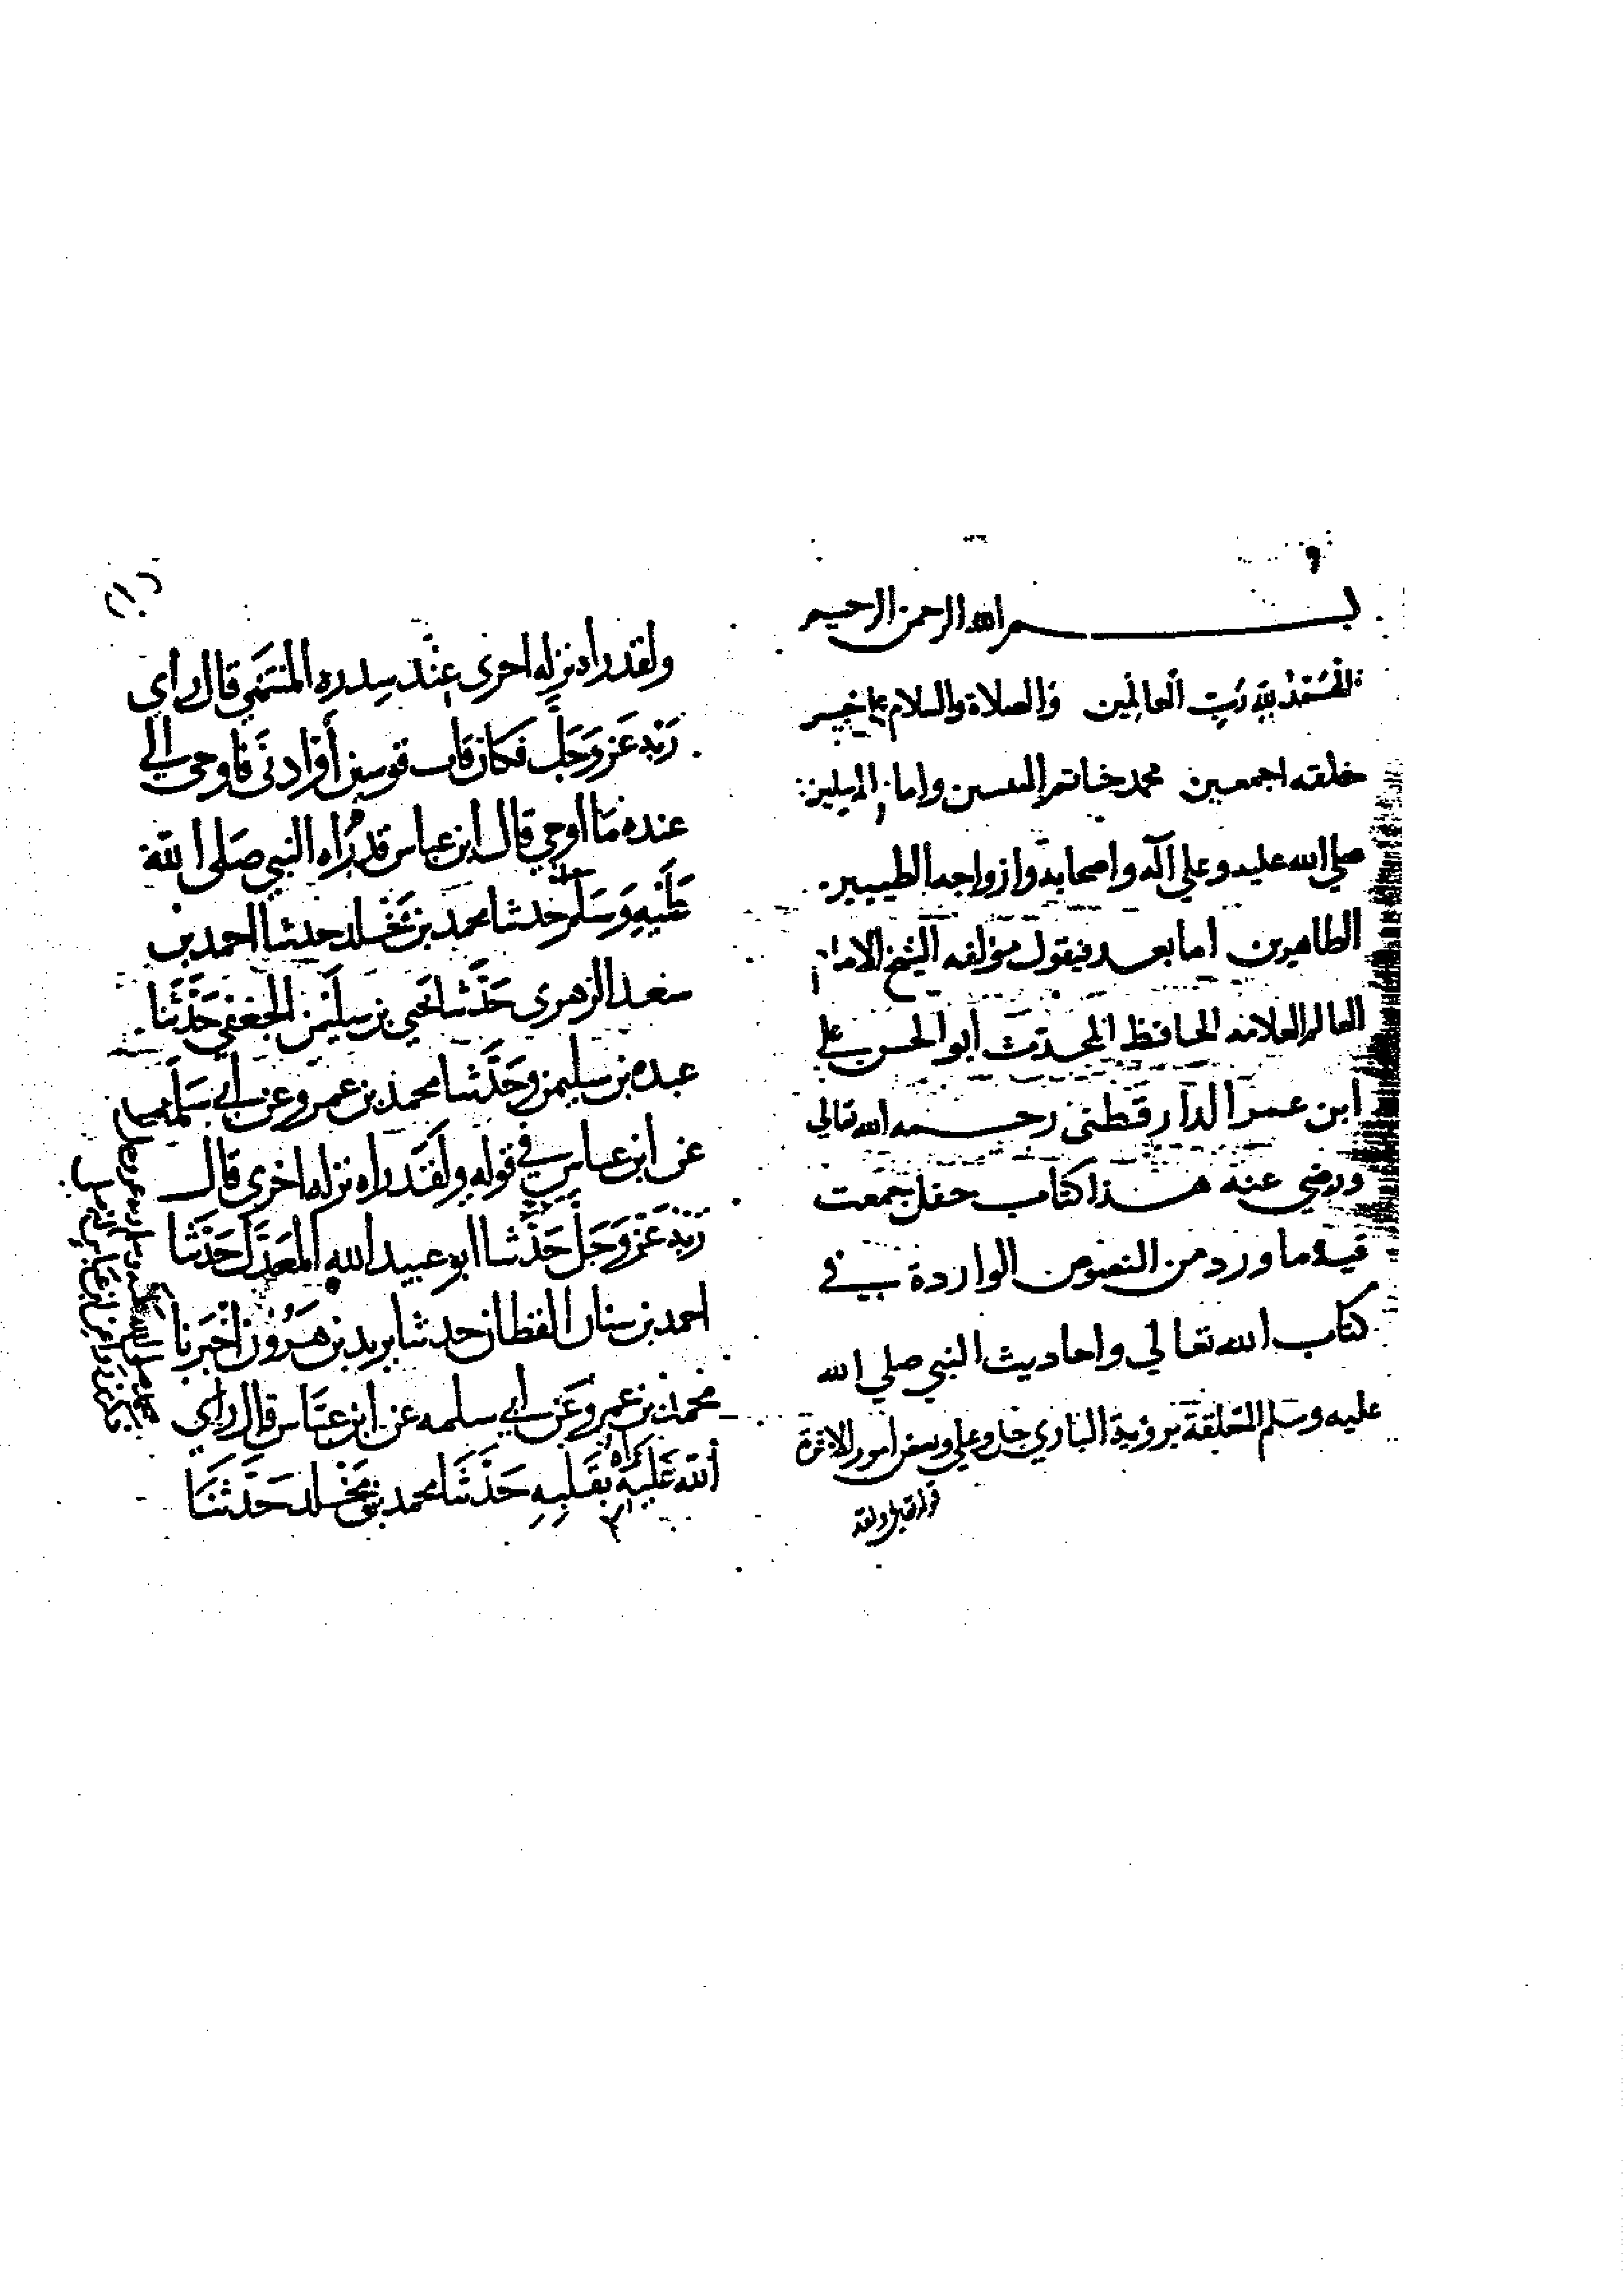 بسم الله الرحمن الرحيم
الحمد لله رب العالمين والصلاة والسلام على خير
خلقه اجمعين محمد خاتم النبيين وامام المرسلين
صلي الله عليه وعلي آله واصحابه وازواجه الطيبين
الطاهرين اما بعد فيقول مؤلفه الشيخ الامام
العالم العلامه الحافظ المحدث أبو الحسن علي
ابن عمر الدارقطني رحمه الله تعالي
ورضي عنه هذا كتاب حفل جمعت
فيه ما ورد من النصوص الواردة في
كتاب الله تعالي واحاديث النبي صلي الله
عليه وسلم المتعلقة برؤية الباري جل وعلي وبعض امور الاخرة
ولقد
ولقد راه نزله اخرى عند سدره المنتهي قال رأي
ربه عز وجل فكان قاب قوسين أو ادنى فاوحي الي
عبده ما اوحي قال ابن عباس قد رآه النبي صلى الله
عليه وسلم حدثنا محمد بن مخلد حدثنا احمد بن
سعد الزهري حدثنا يحيي بن سليمن الجعفي حدثنا
عبده بن سليمن وحدثنا محمد بن عمرو عن أبي سلمه
عن ابن عباس في قوله ولقد راه نزلة اخري قال
ربه عز وجل حدثنا ابو عبيد الله المعدل حدثنا
احمد بن سنان القطان حدثنا يزيد بن هرون أخبرنا
محمد بن عمرو عن أبي سلمه عن ابن عباس قال رأي
بقلبه حدثنا محمد بن مخلد حدثنا